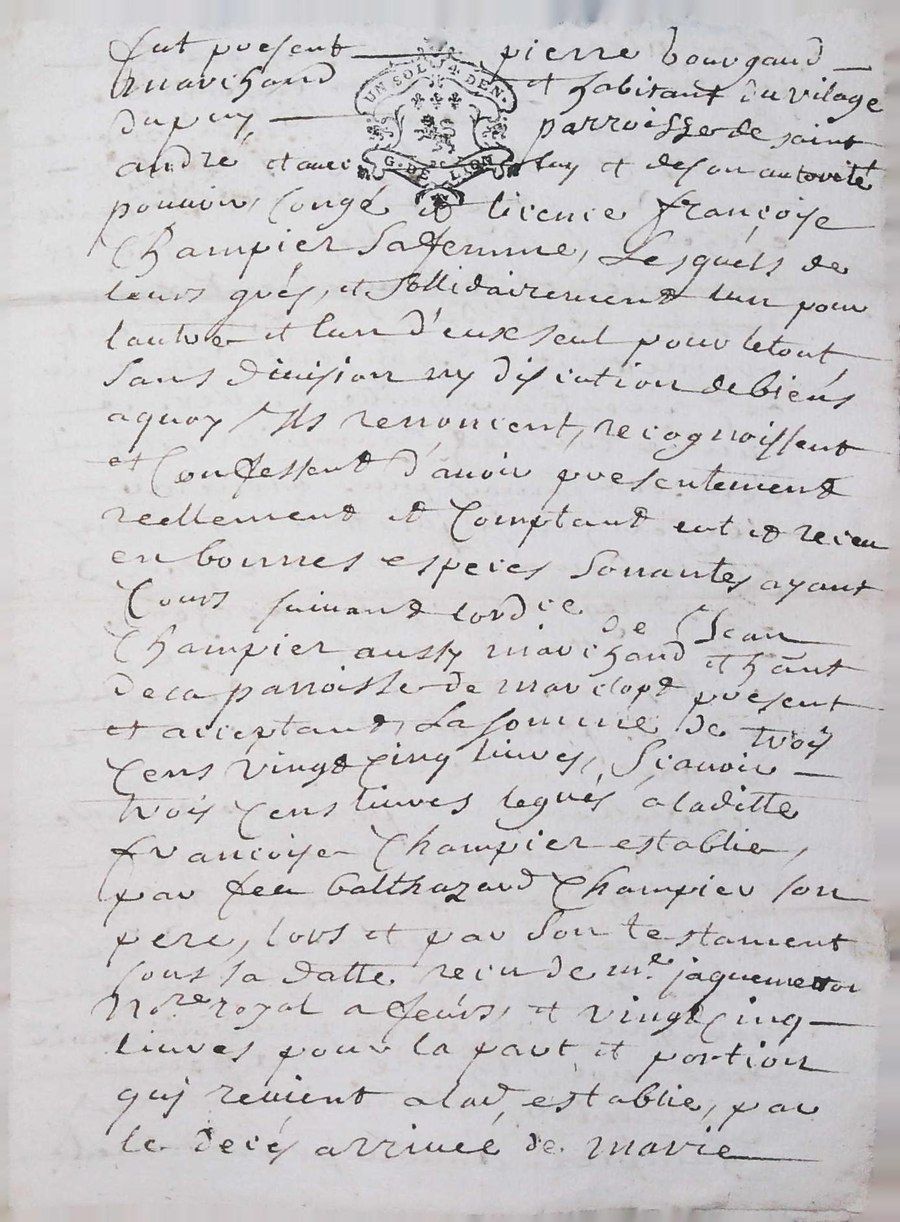 fut present pierre bourgaud
UN SOL IJ 4 DEN.
marchand et habitant du vilage
du puy parroisse de saint
andré et avec luy et deson autorité
G. DE LION
pouvoir, Congé et licence françoise
Champier Safemme, Lesquels de
leurs grés, et Sollidairement lun pour
lautre et lun d'eux seul pour letout
Sans division ny discution debiens
aquoy Ils renoncent, recognoissent
et Confessent d'avoir presentement
reellement et Comptant eut et receu
en bonnes especes Sonantes ayant
Cours suivant lord.ce de Jean
Champier aussy marchand et hãnt
de la parroisse de marclopt present
et acceptant, La somme de trois
Cens vingt Cinq livres, Sçavoir
trois Cens livres legués aladitte
françoise Champier establie,
par feu balthazard Champier son
pere, lors et par Son testament
sous sa datte receu de m.e jaquemetton
No.re royal a feurs, et vingt Cinq
livres pour la part et portion
qui revient alad. establie, par
le decés arrivée de marie